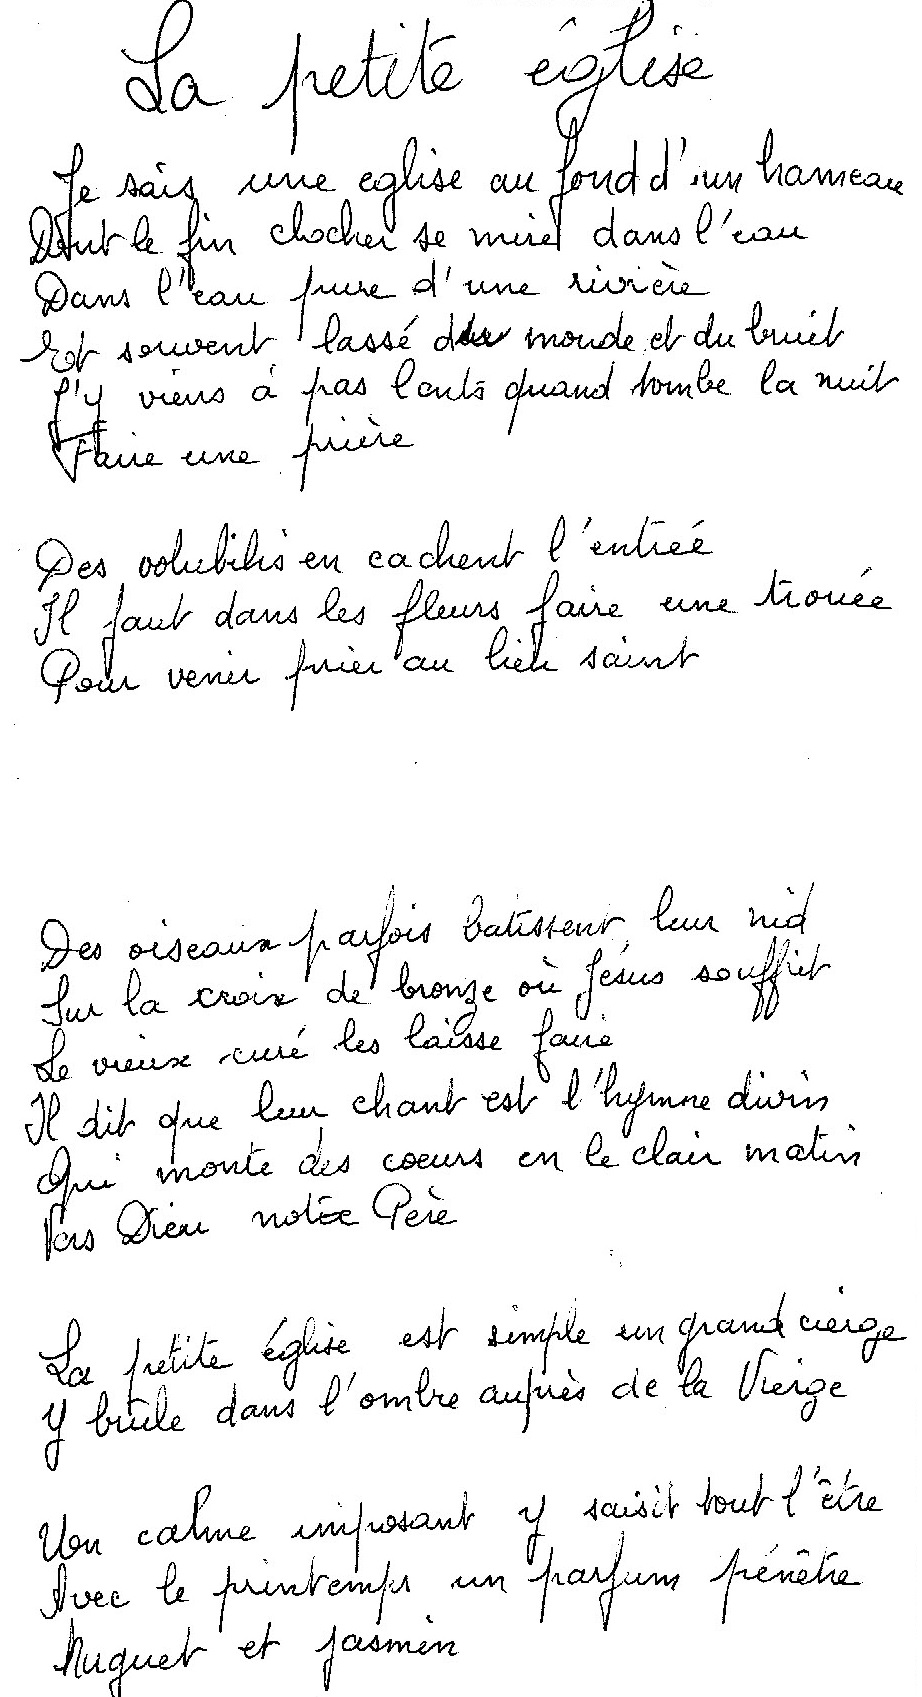 La petite église
Je sais une eglise au fond d'un hameau
Dont le fin clocher se mire dans l'eau
Dans l'eau pure d'une rivière
Et souvent lassé du monde et du bruit
J'y viens à pas lents quand tombe la nuit
Faire une prière
Des volubilis en cachent l'entrée
Il faut dans les fleurs faire une trouée
Pour venir prier au lieu saint
Des oiseaux parfois batissent leur nid
Sur la croix de bronze où Jésus souffrit
Le vieux curé les laisse faire
Il dit que leur chant est l'hymne divin
Qui monte des coeurs en le clair matin
Vers Dieu notre Père
La petite église est simple un grand cierge
Y brûle dans l'ombre auprès de la Vierge
Un calme imposant y saisit tout l'être
Avec le printemps un parfum pénêtre
Muguet et jasmin